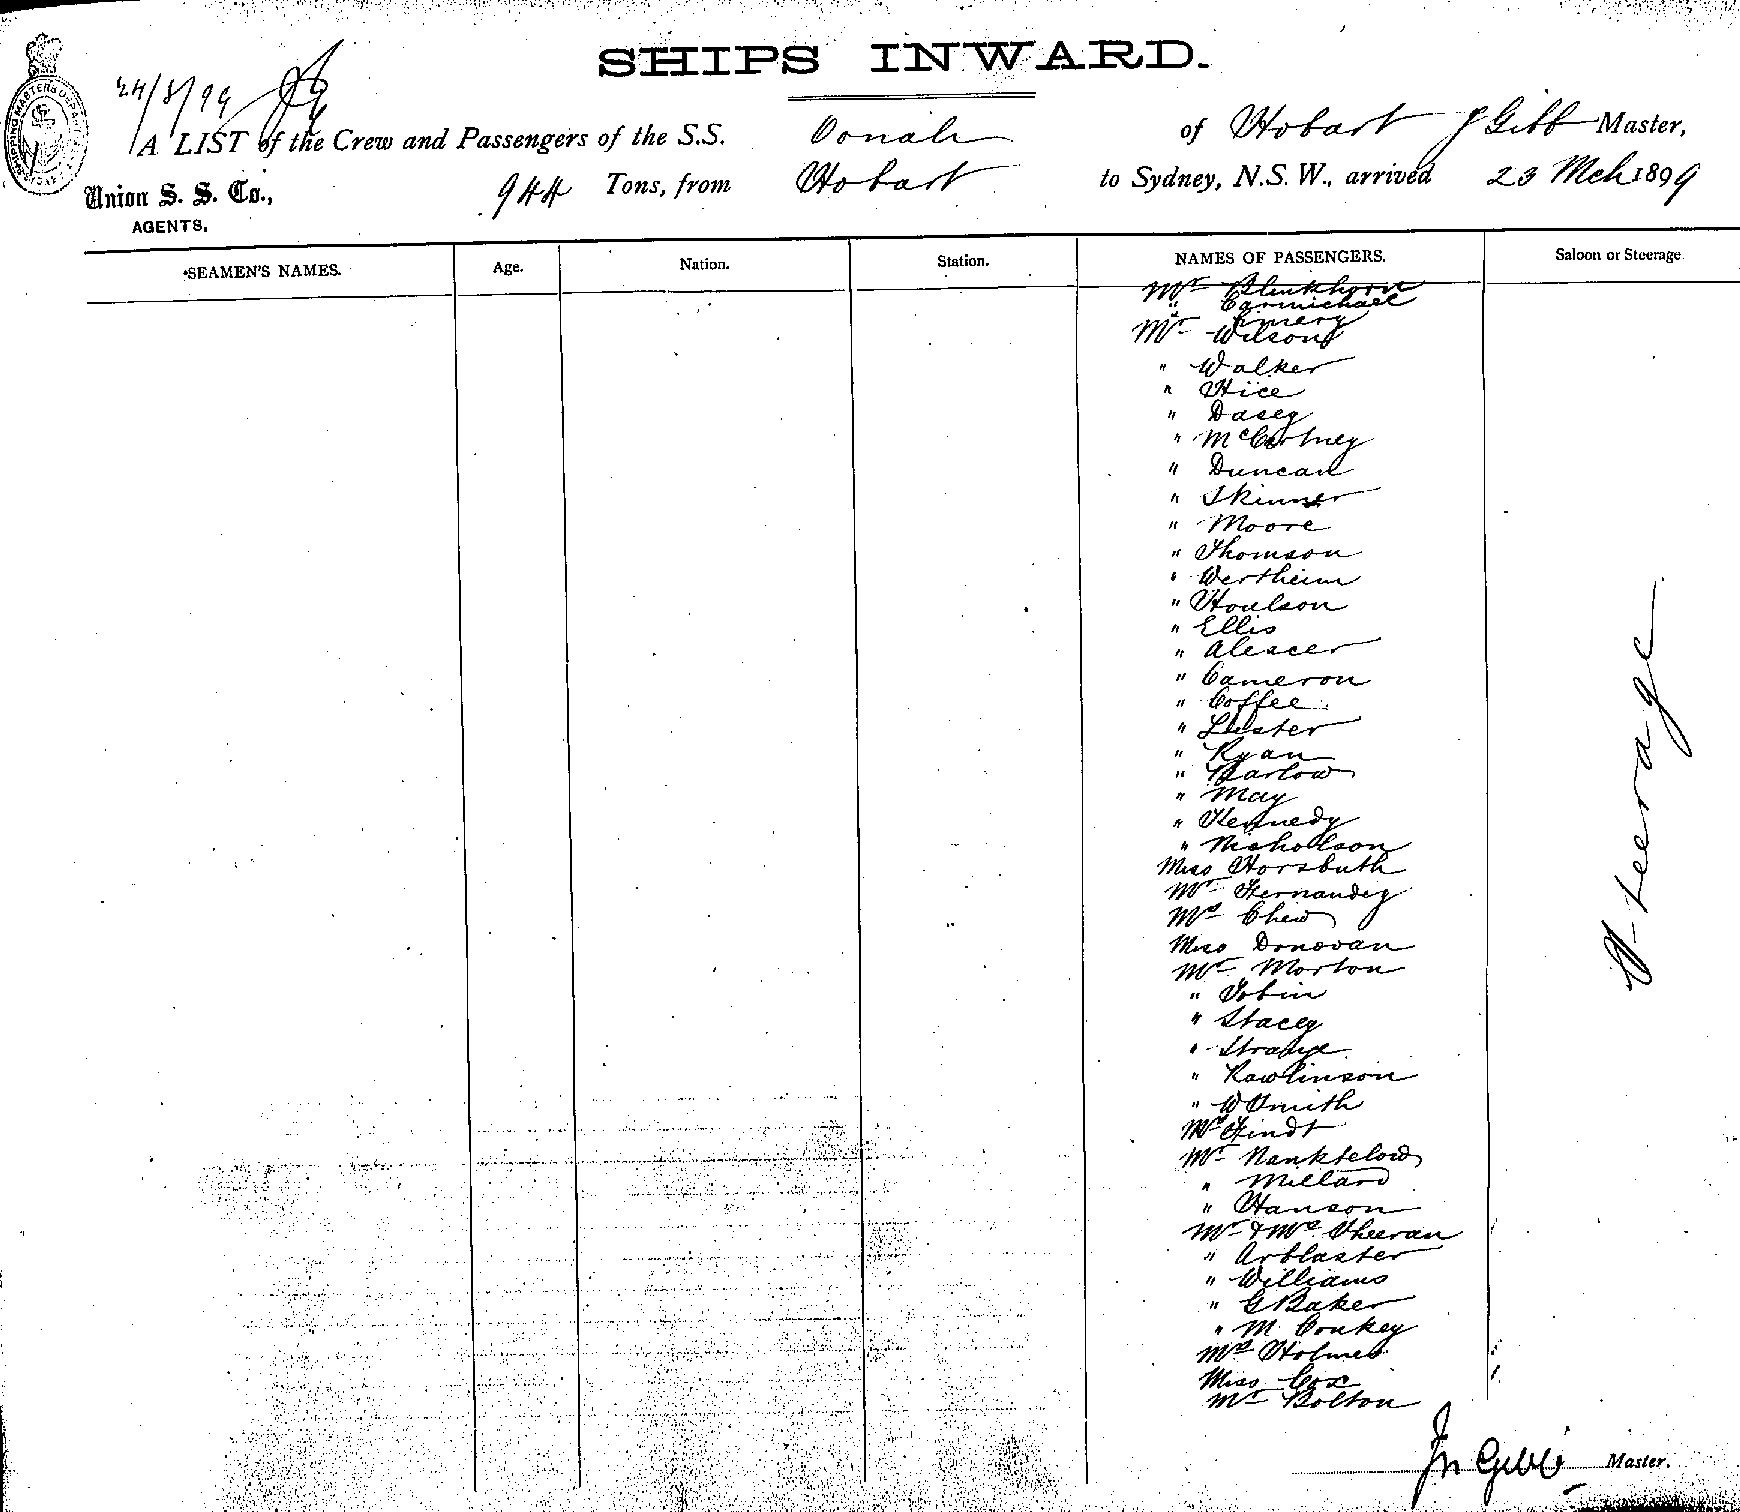 SHIPS INWARD.
24/3/99
A LIST of the Crew and Passengers of the S.S. Oonah of Hobart J Gibb Master,
Union S. S. Co., 944 Tons, from Hobart to Sydney, N.S.W., arrived 23 Mch 1899
AGENTS,
SEAMEN'S NAMES. Age. Nation. Station. NAMES OF PASSENGERS. Saloon or Steerage
Mr Blenkhorn
" Carmichael
" Emery
Mr Wilson
" Walker
" Hice
" Dasey
" McCartney
" Duncan
" Skinner
" Moore
" Thomson
" Wertheim
" Houlson
" Ellis
"
" Cameron
" Coffee
" Lester
" Ryan
" Barlow
" May
" Kennedy
" Nicholson
Miss
Mr Fernandez
Mrs Chew
Miss Donovan
Mr Morton
" Tobin
" Stacey
" Strange
" Rawlinson
" W Smith
Mrs Findt
Mr Nanktelow
" Millard
" Hanson
Mr & Mrs Sheeran
" Arblaster
" Williams
" G Baker
" M Conkey
Mrs Holmes
Miss Cox
Mr Bolton
Steerage
Jn Gibb Master.